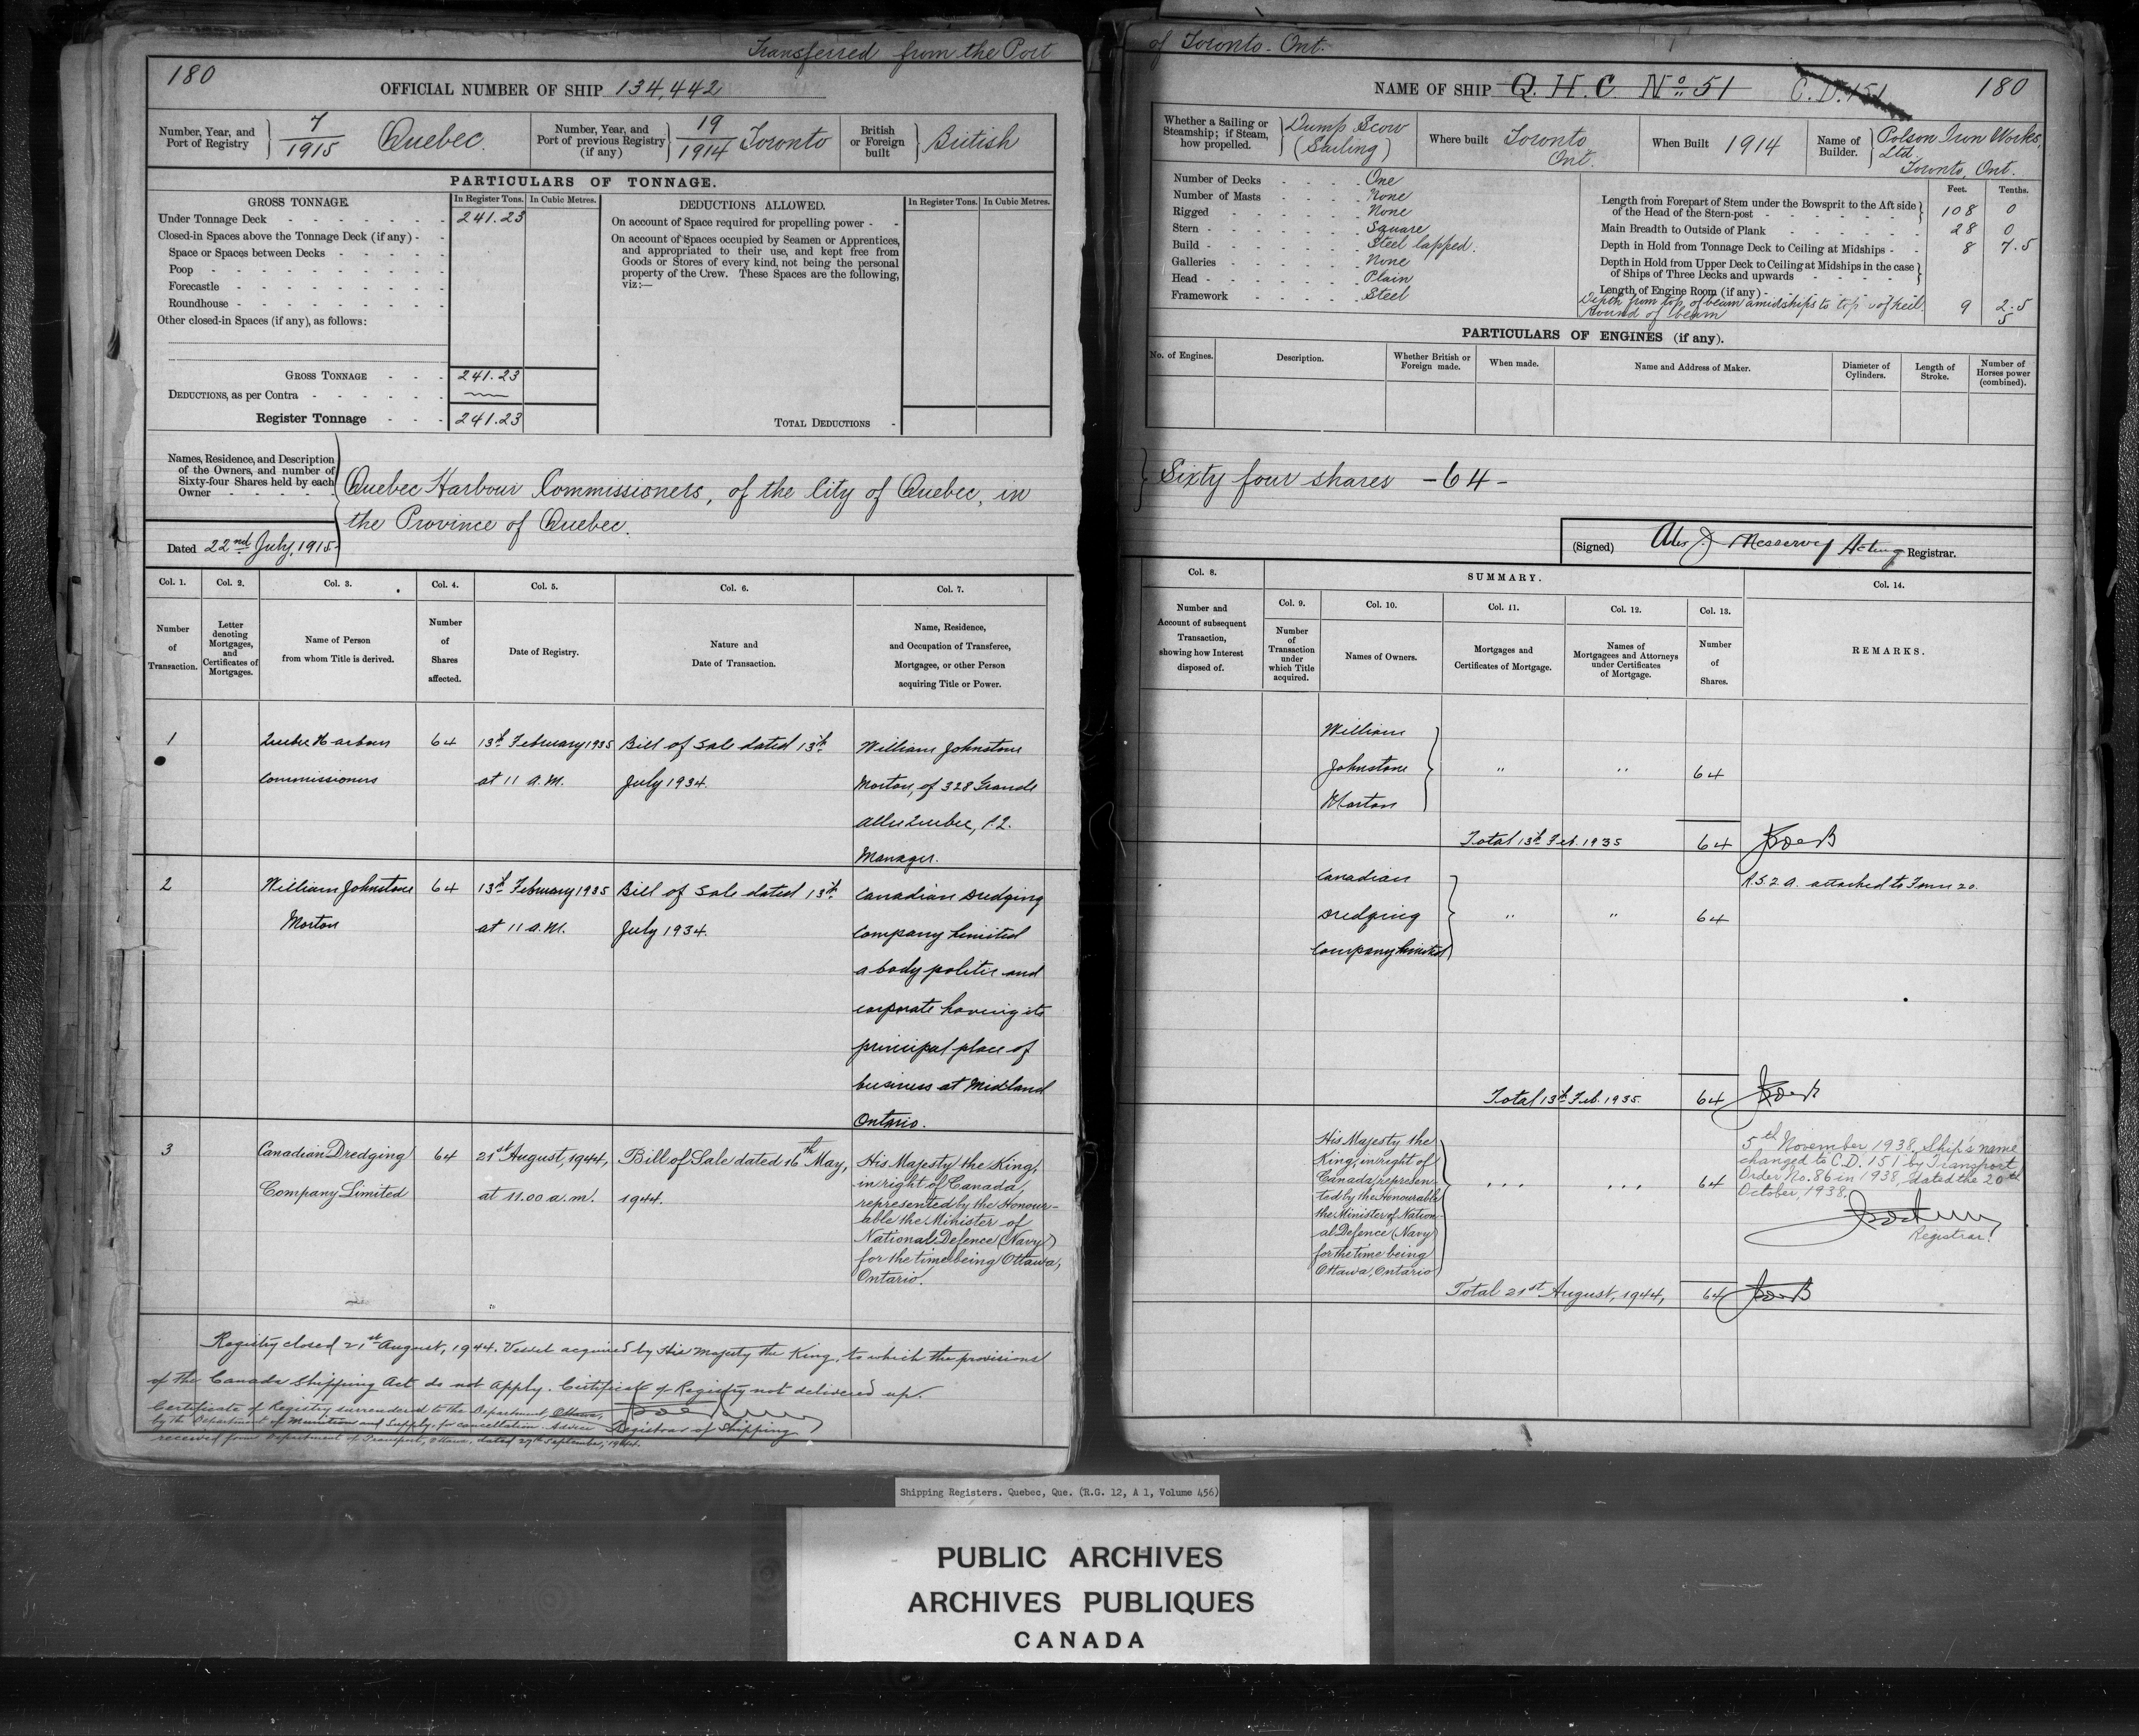 Transferred from the Port
of Toronto - Ont.
180
OFFICIAL NUMBER OF SHIP 134,442
Number, Year, and Port of Registry
7/1915 Quebec.
Number, Year, and Port of previous Registry (if any)
19/1914 Toronto
British or Foreign built
British
PARTICULARS OF TONNAGE.
GROSS TONNAGE.
In Register Tons.
In Cubic Metres.
Under Tonnage Deck - - - - - - 241.23
Closed-in Spaces above the Tonnage Deck (if any) - -
Space or Spaces between Decks - - - - -
Poop - - - - - - - - -
Forecastle - - - - - - - -
Roundhouse - - - - - - - -
Other closed-in Spaces (if any), as follows:
GROSS TONNAGE - - - 241.23
DEDUCTIONS, as per Contra - - - - - -
Register Tonnage - - - 241.23
DEDUCTIONS ALLOWED.
In Register Tons.
In Cubic Metres.
On account of Space required for propelling power - -
On account of Spaces occupied by Seamen or Apprentices,
and appropriated to their use, and kept free from
Goods or Stores of every kind, not being the personal
property of the Crew. These Spaces are the following,
viz:—
TOTAL DEDUCTIONS -
Names, Residence, and Description
of the Owners, and number of
Sixty-four Shares held by each
Owner - - - - -
Quebec Harbour Commissioners, of the City of Quebec, in
the Province of Quebec.
Dated 22nd July, 1915.
Col. 1.
Number of Transaction.
Col. 2.
Letter denoting Mortgages, and Certificates of Mortgages.
Col. 3.
Name of Person from whom Title is derived.
Col. 4.
Number of Shares affected.
Col. 5.
Date of Registry.
Col. 6.
Nature and Date of Transaction.
Col. 7.
Name, Residence, and Occupation of Transferee, Mortgagee, or other Person acquiring Title or Power.
1
Quebec Harbour
Commissioners
64
13th February 1935
at 11 A.M.
Bill of Sale dated 13th
July 1934.
William Johnstone
Morton, of 328 Grande
Allee Quebec, P.Q.
Manager.
2
William Johnstone
Morton
64
13th February 1935
at 11 a.m.
Bill of Sale dated 13th
July 1934.
Canadian Dredging
Company Limited
a body politic and
corporate having its
principal place of
business at Midland
Ontario.
3
Canadian Dredging
Company Limited
64
21st August, 1944,
at 11.00 a.m.
Bill of Sale dated 16th May,
1944.
His Majesty the King,
in right of Canada,
represented by the Honour-
able the Minister of
National Defence (Navy)
for the time being Ottawa,
Ontario.
Registry closed 21st August, 1944. Vessel acquired by His Majesty the King, to which the provisions
of the Canada Shipping Act do not apply. Certificate of Registry not delivered up.
Certificate of Registry surrendered to the Department, Ottawa,
by the Department of Munitions and Supply, for cancellation. Advice
Registrar of Shipping
received from Department of Transport, Ottawa, dated 27th September, 1944.
NAME OF SHIP Q. H. C. No. 51 C.D. 151
180
Whether a Sailing or Steamship; if Steam, how propelled.
Dump Scow
(Sailing)
Where built
Toronto,
Ont.
When Built 1914
Name of Builder.
Polson Iron Works,
Ltd.
Toronto, Ont.
Number of Decks - - - - One
Number of Masts - - - - None
Rigged - - - - - - None
Stern - - - - - - Square
Build - - - - - - Steel lapped.
Galleries - - - - - None
Head - - - - - - Plain
Framework - - - - Steel
Feet.
Tenths.
Length from Forepart of Stem under the Bowsprit to the Aft side
of the Head of the Stern-post - - - - - - 108 0
Main Breadth to Outside of Plank - - - - - 28 0
Depth in Hold from Tonnage Deck to Ceiling at Midships - - 8 7.5
Depth in Hold from Upper Deck to Ceiling at Midships in the case
of Ships of Three Decks and upwards - - - - -
Length of Engine Room (if any) - - - - - -
Depth from top of beam amidships to top of keel. 9 2.5
Round of beam 5
PARTICULARS OF ENGINES (if any).
No. of Engines.
Description.
Whether British or Foreign made.
When made.
Name and Address of Maker.
Diameter of Cylinders.
Length of Stroke.
Number of Horses power (combined).
Sixty four shares - 64 -
(Signed) Alex J. Messervy Acting Registrar.
Col. 8.
Number and Account of subsequent Transaction, showing how Interest disposed of.
SUMMARY.
Col. 9.
Number of Transaction under which Title acquired.
Col. 10.
Names of Owners.
Col. 11.
Mortgages and Certificates of Mortgage.
Col. 12.
Names of Mortgagees and Attorneys under Certificates of Mortgage.
Col. 13.
Number of Shares.
Col. 14.
REMARKS.
William
Johnstone
Morton
" " 64
Total 13th Feb. 1935 64
Canadian
Dredging
Company Limited
" " 64
attached to Form 20.
Total 13th Feb. 1935. 64
His Majesty the
King, in right of
Canada, represen-
ted by the Honourable
the Minister of Nation-
al Defence (Navy)
for the time being
Ottawa, Ontario
... ... 64
5th November 1938. Ship's name
changed to "C.D. 151" by Transport
Order No. 86 in 1938, dated the 20th
October, 1938.
Registrar.
Total 21st August, 1944, 64
Shipping Registers. Quebec, Que. (R.G. 12, A 1, Volume 456)
PUBLIC ARCHIVES
ARCHIVES PUBLIQUES
CANADA